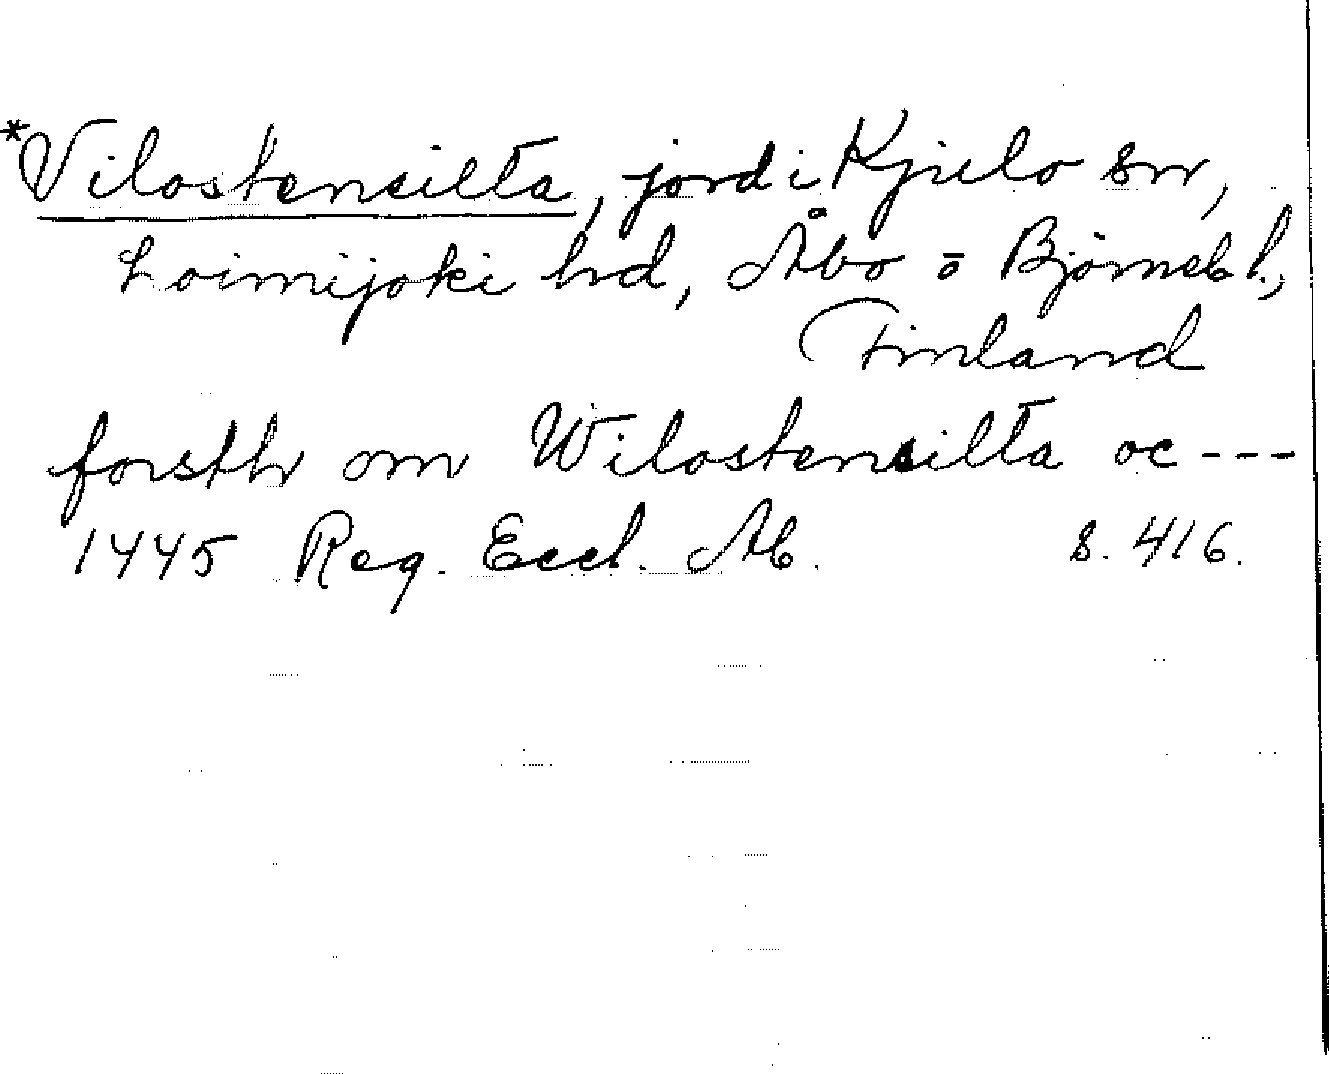 *Vilostensilta, jord i Kjulo sn,
Loimijoki hd, Åbo o Björneb l.,
Finland
forsth om Wilostensilta oc ---
1445 Reg. Eccl. Ab. s. 416.